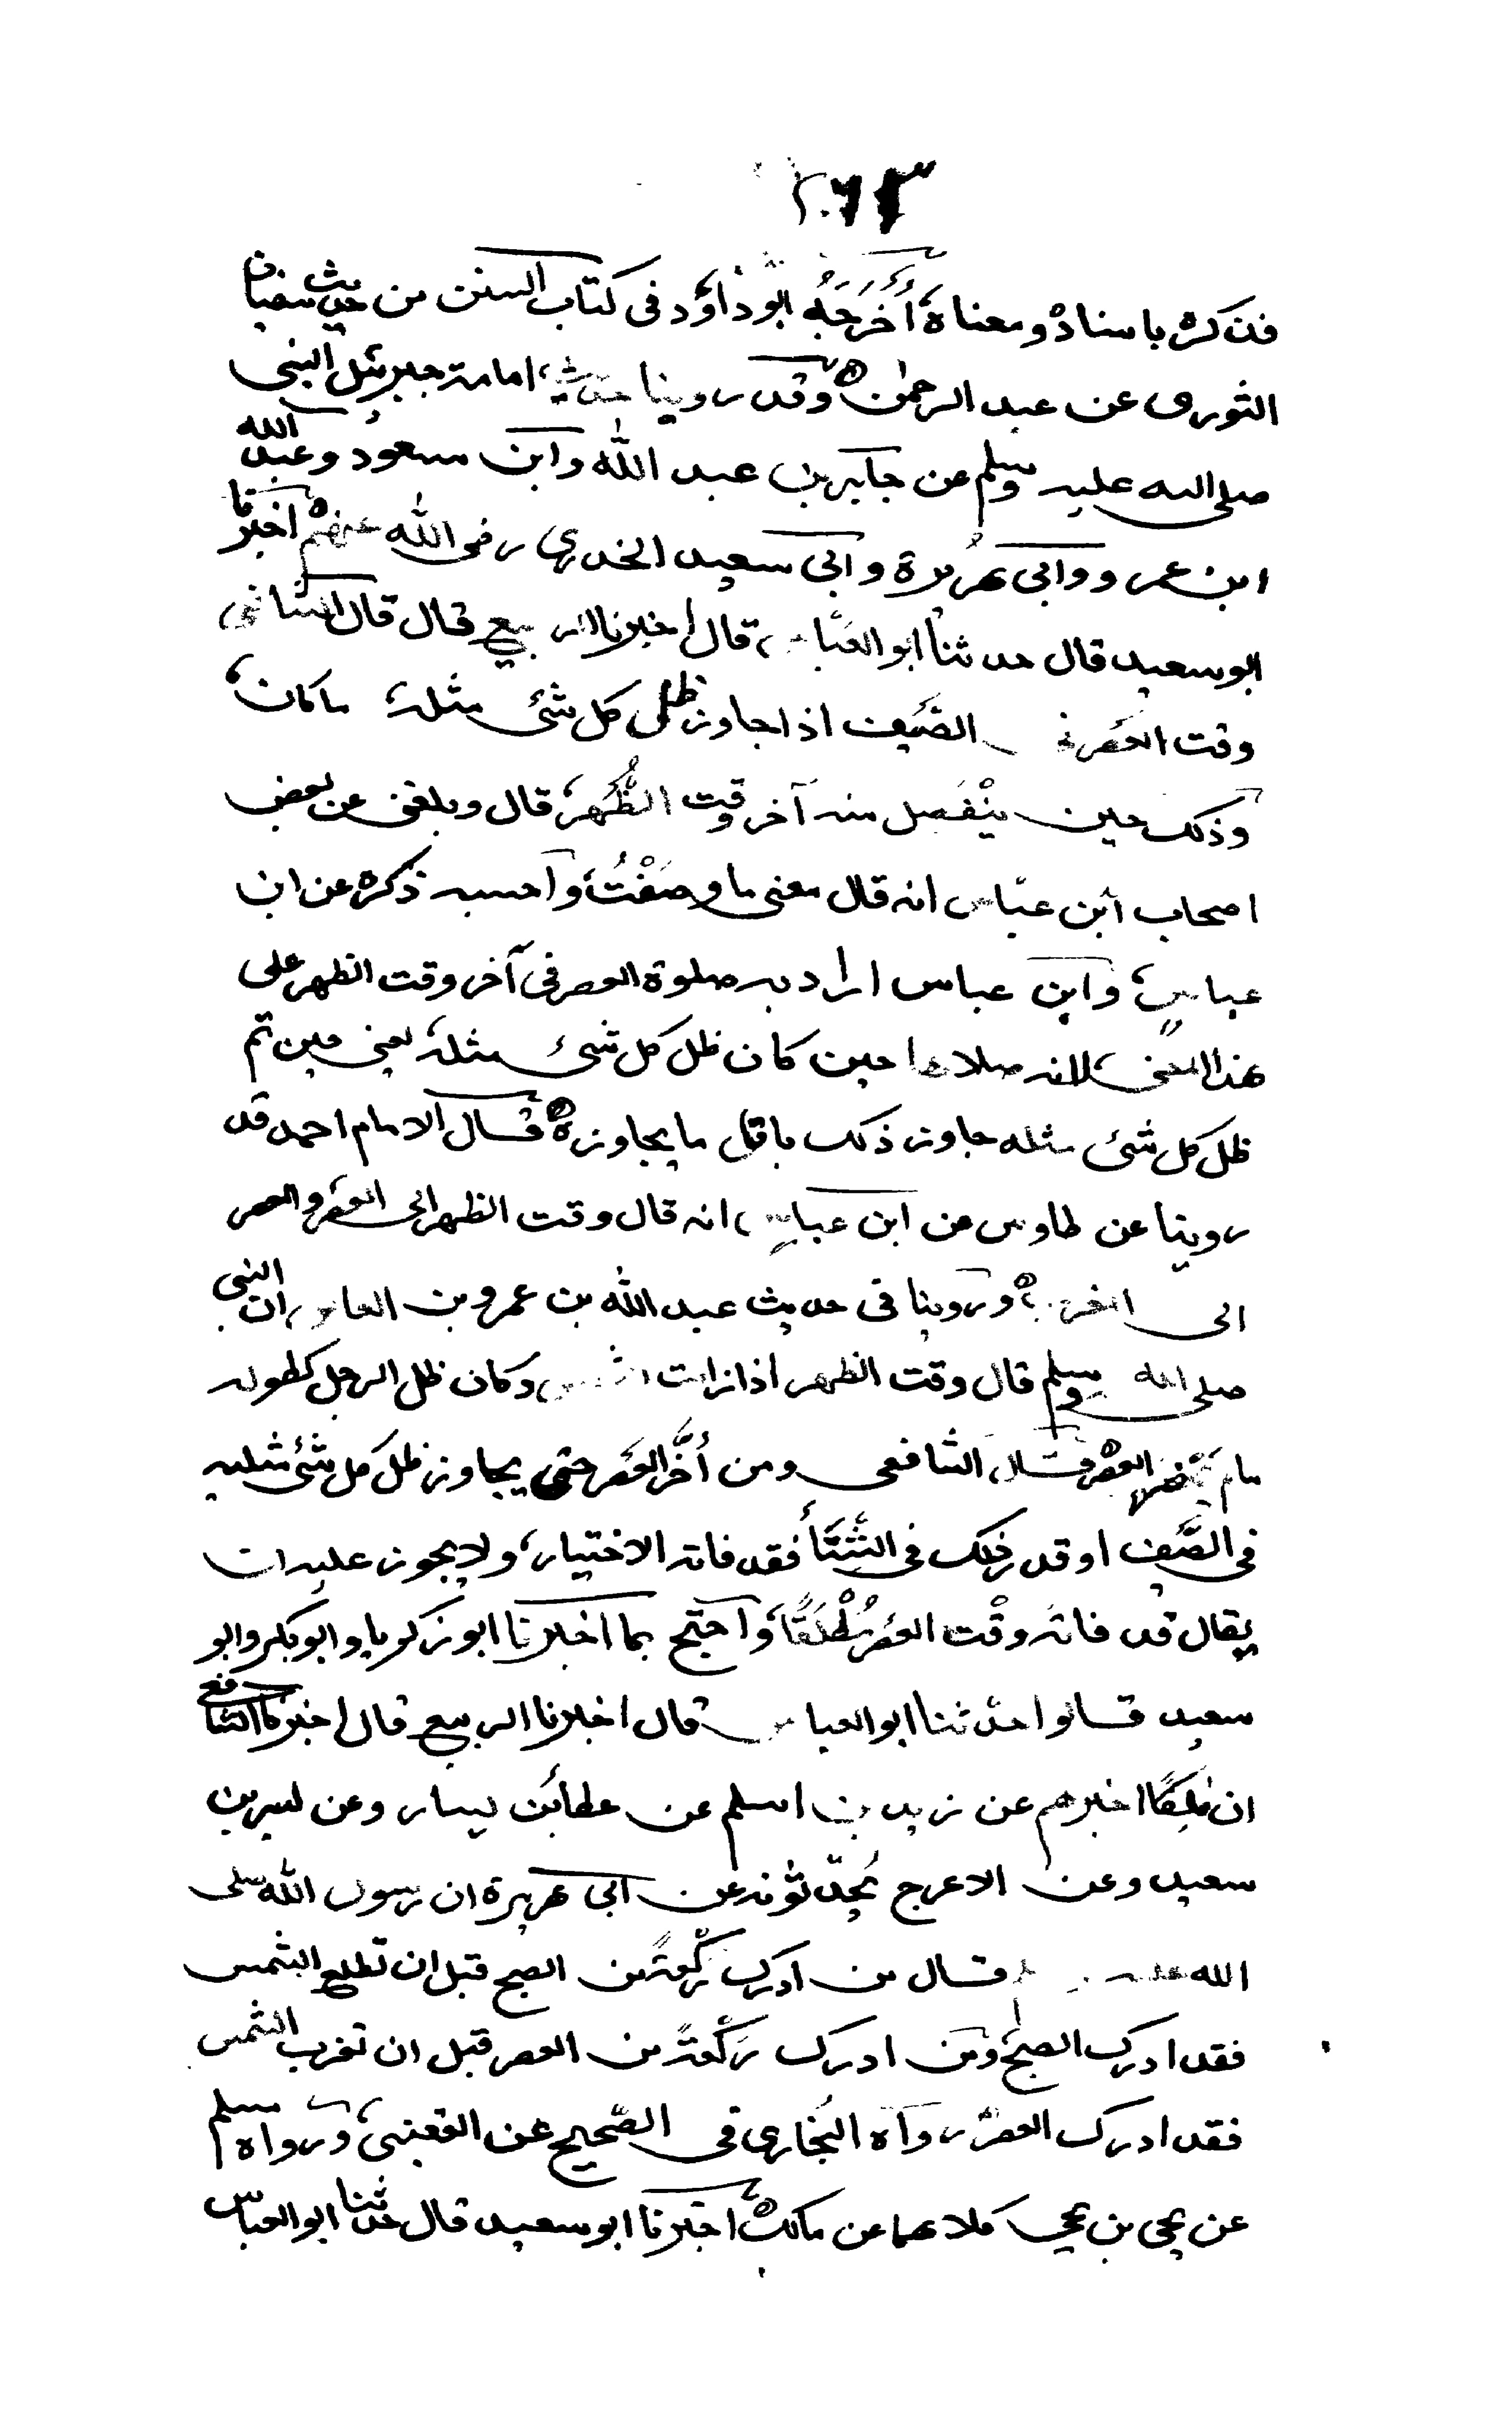 ٢٦٣
فذكره باسناده ومعناه أخرجه ابو داؤد في كتاب السنن من حديث سفيان
الثوري عن عبد الرحمٰن وقد روينا حديث امامة جبرئيل النبي
صلى الله عليه وسلم عن جابر بن عبد الله وابن مسعود وعبد الله
ابن عمر ووابي هريرة وابي سعيد الخدري رضى الله عنهم اخبرنا
ابو سعيد قال حدثنا ابو العباس قال اخبرنا الربيع قال قال الشافعي
وقت العصر في الصَّيف اذا جاوز ظل كل شئ مثله ما كان
وذلك حين ينْفَصِل منه آخر وقت الظُّهر قال وبلغني عن بعض
اصحاب ابن عبّاس انه قال معنى ما وصَفْتُ وآحسبه ذكره عن ابن
عباسٍ وابن عباس اراد به صلوة العصر في آخر وقت الظهر على
هذا المعنى لانه صلاها حين كان ظل كل شئ مثله يعني حين تم
ظل كل شئ مثله جاوز ذلك باقل ما يجاوزه قال الامام احمد قد
روينا عن طاوس عن ابن عباسٍ انه قال وقت الظهر الى العصر والعصر
الى المغرب وروينا في حديث عبد الله بن عمرو بن العاص ان النبي
صلى الله وسلم قال وقت الظهر اذا زالت الشمس وكان ظل الرجل كطوله
مالم تحضر العصر قال الشافعي ومن أخَّر العصر حتى يجاوز ظل كل شئ مثليه
في الصَّيف او قدر ذلك في الشّتَأ فقد فاته الاختيار، ولا يجوز عليه ان
يقال قد فاته وقْت العصر مُطْلَقًا وآحتج بما اخبرنا ابو زكريا وابو بكر وابو
سعيد قالوا حدّثنا ابو العباس قال اخبرنا الربيع قال اخبرنا الشافعي
ان مالكًا اخبرهم عن زيد بن اسلم عن عطأبن يسار وعن بسر بن
سعيد وعن الاعرج يُحدّثونه عن ابي هريرة ان رسول الله صلى
الله عليه وسلم قال من ادرك ركْعةً من الصبح قبل ان تطلع الشمس
فقد ادرك الصبح ومن ادرك رَكْعةً من العصر قبل ان تغرب الشمس
فقد ادرك العصر رواه البُخاري في الصَّحيح عن القعنبي ورواه مسلم
عن يحي بن يحي كلاهما عن مالك اخبرنا ابو سعيد قال حدثنا ابو العباس